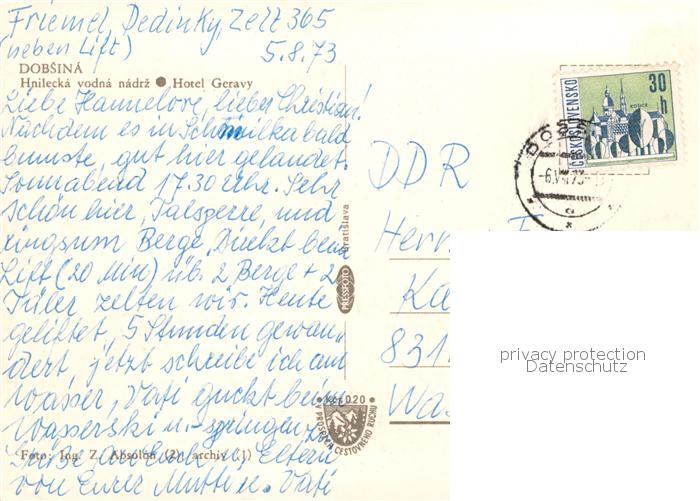 Friemel, Dedinky, Zelt 365
(neben Lift) 5.8.73
DOBŠINÁ
Hnilecká vodná nádrž ● Hotel Geravy
Liebe Hannelore, lieber Christian!
Nachdem es in Schmilka bald
bumste, gut hier gelandet.
Sonnabend 17.30 Uhr. Sehr
schön hier, Talsperre, und
ringsum Berge. Direkt beim
Lift (20 Min) üb. 2 Berge + 2
Täler zelten wir. Heute
geliftet, 5 Stunden gewan„
dert, jetzt schreibe ich am
Wasser, Vati guckt beim
Wasserski u. -springen zu.
Foto: Ing. Z. Absolon (2), archív (1)
Grüße u. Eltern
von Eurer Mutti u. Vati
PRESSFOTO Bratislava
Kčs 0,20
CESTOVNÉHO RUCHU
DDR
Herr F
Ka
831
Wa
ČESKOSLOVENSKO
30 h
KOŠICE
privacy protection
Datenschutz